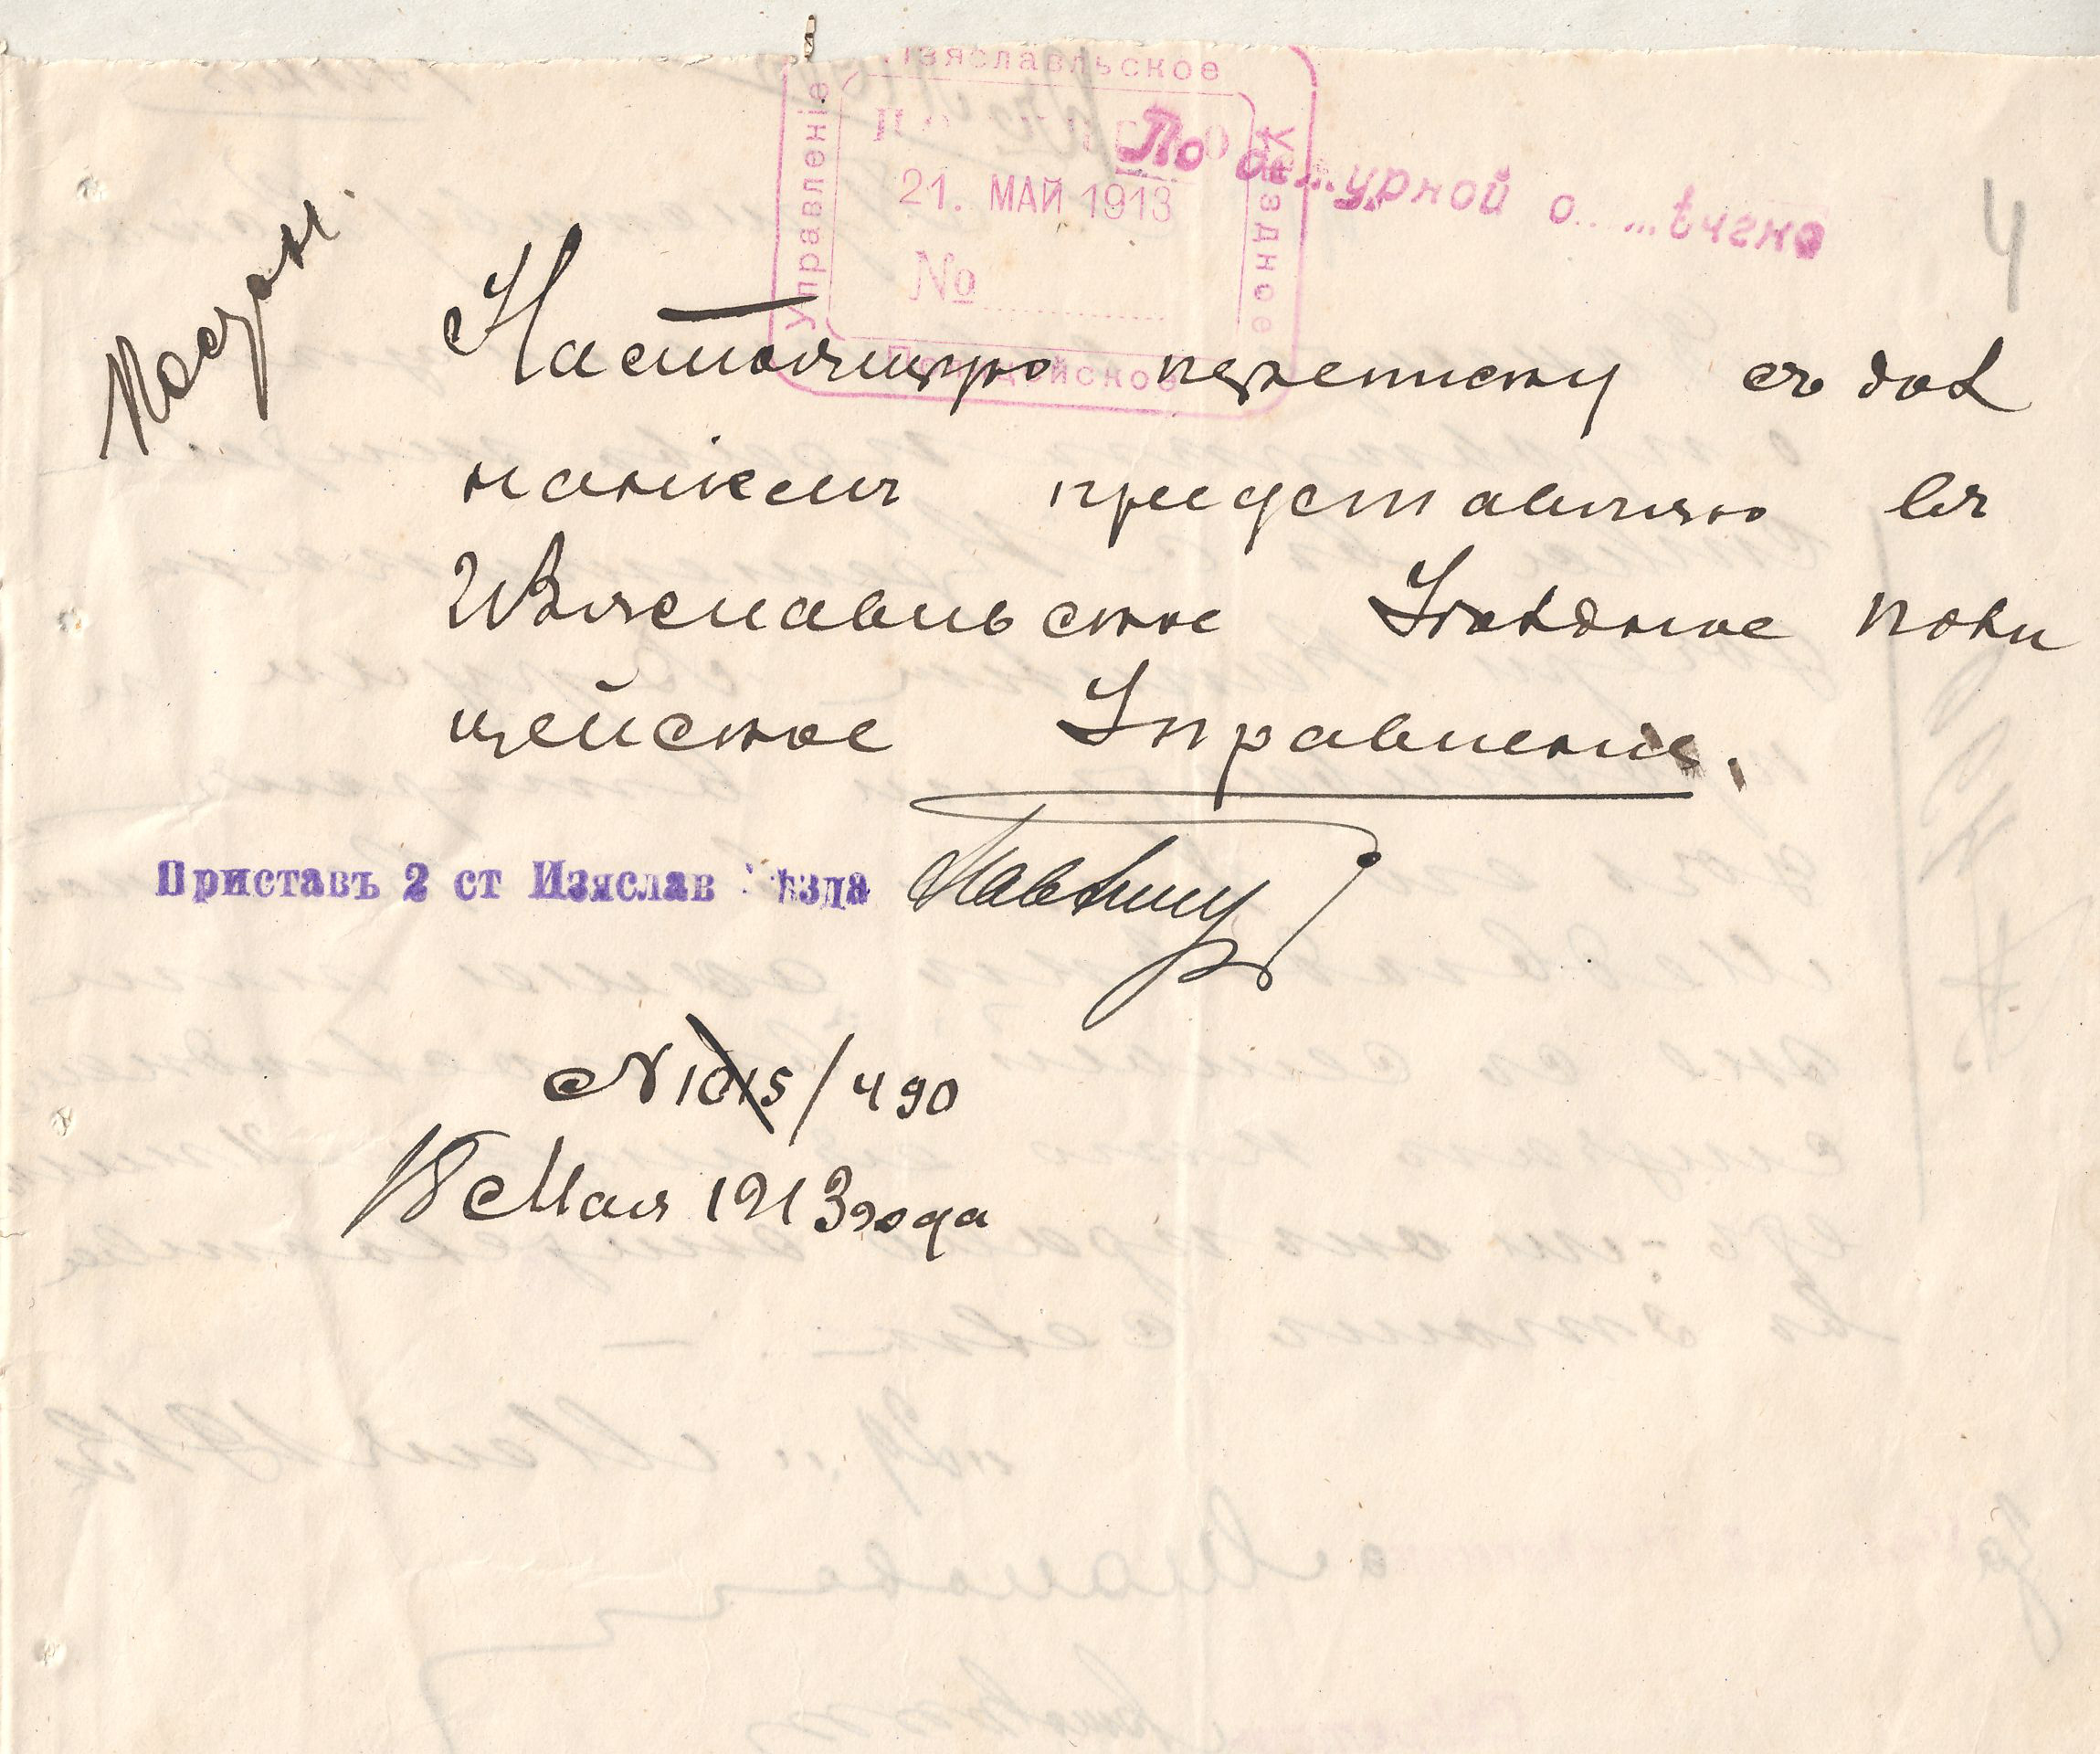 Изяславльское
Управленіе
Уѣздное
Полицейское
21. МАЙ 1913
№
По
урной
4
Настоящую переписку съ доз
наніемъ представляю въ
Изяславльское Уѣздное Поли
цейское Управленіе.
Приставъ 2 ст Изяслав ѣзда
N 1015/490
Мая 1913 года